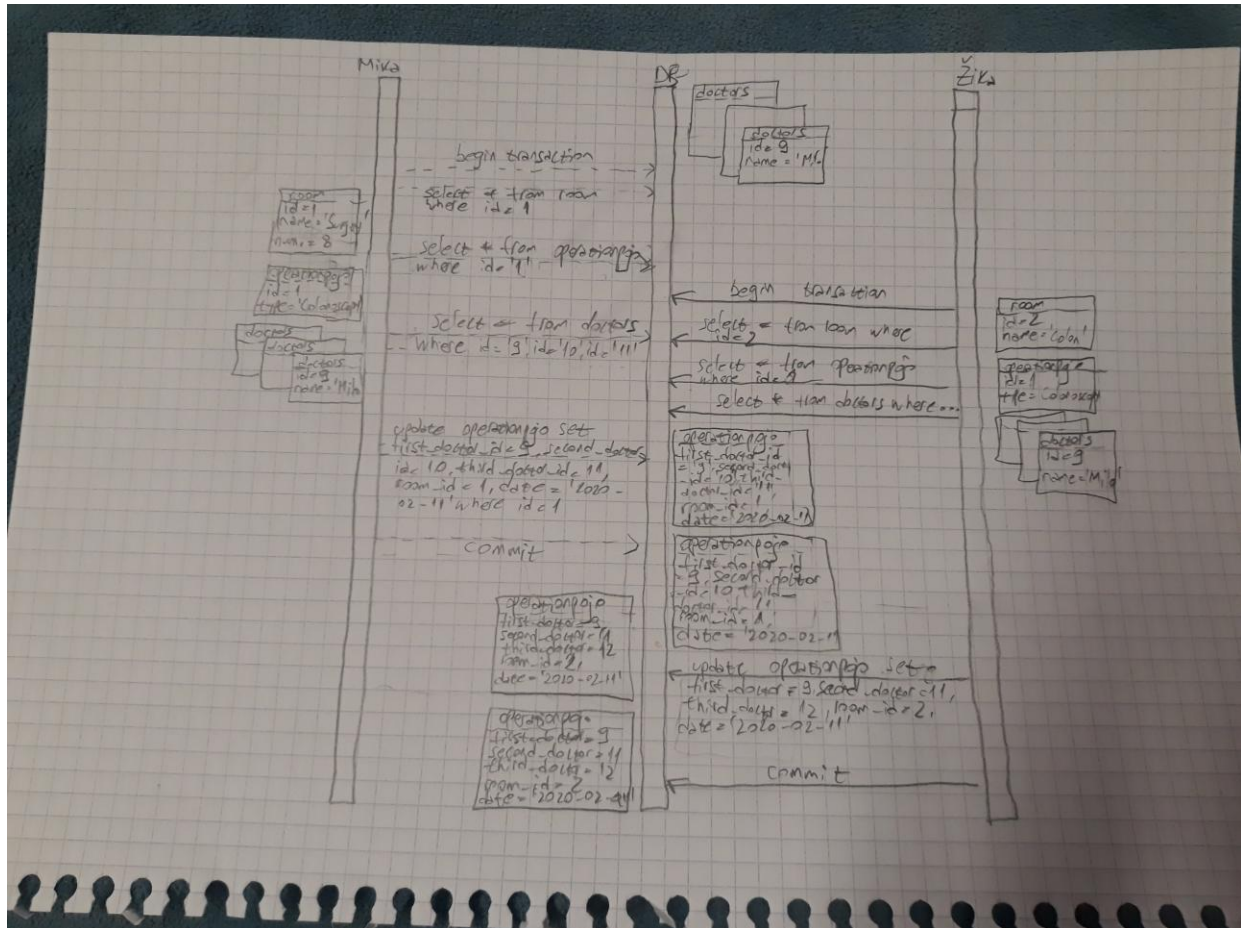 Mika
DB
Žika
doctors
doctors
id=9
name='Mila
begin transaction
select * from room
where id=1
room
id=1
name='Surgery'
num.=8
select * from operationpojo
where id='1'
operationpojo
id=1
type='Coloroscopy
select * from doctors
where id='9',id='10',id='11'
doctors
doctors
doctors
id=9
name='Mila
begin transaction
select * from room where
id=2
room
id=2
name='Colon'
select * from operationpojo
where id=9
operationpojo
id=1
select * from doctors where...
doctors
id=9
name='Mila'
update operationpojo set
first_doctor_id=9, second_doctor_
id=10, third_doctor_id=11,
room_id=1, date='2020-
02-11' where id=1
operationpojo
first_doctor_id
='9', second_doctor
_id='10', third-
doctor_id='11'
room_id='1'
date='2020-02-11
commit
operationpojo
first_doctor_id
=9, second_doctor
_id=10, third_
doctor_id=11
room_id=1,
date='2020-02-11
operationpojo
first_doctor=9
second_doctor=11
third_doctor=12
room_id=2,
date='2020-02-11'
update operationpojo set
first_doctor=9, second_doctor=11,
third_doctor=12, room_id=2,
date='2020-02-11'
operationpojo
first_doctor=9
second_doctor=11
third_doctor=12
room_id=2
date='2020-02-11'
commit